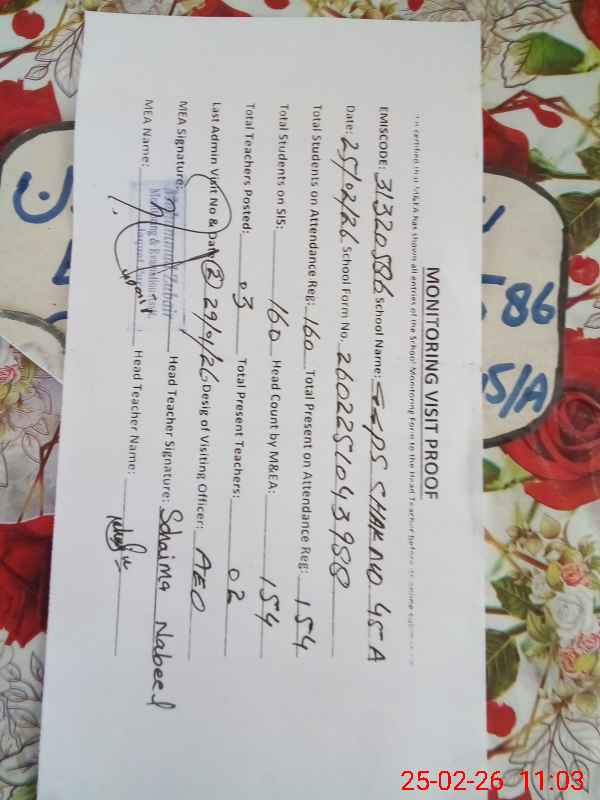 MONITORING VISIT PROOF
It is certified that M&EA has shown all entries of the School Monitoring Form to the Head Teacher before
EMISCODE: 31320586 School Name: GGPS CHAK NO 45-A
Date: 25/02/26 School Form No. 2602251043988
Total Students on Attendance Reg: 160 Total Present on Attendance Reg: 154
Total Students on SIS: 160 Head Count by M&EA: 154
Total Teachers Posted: 03 Total Present Teachers: 02
Last Admin Visit No & Date (2) 29/01/26 Desig of Visiting Officer: AEO
MEA Signature: Head Teacher Signature: Schaima Nabeel
Muhammad Zubair
Monitoring & Evaluation
MEA Name: Head Teacher Name:
586
45/A
25-02-26 11:03